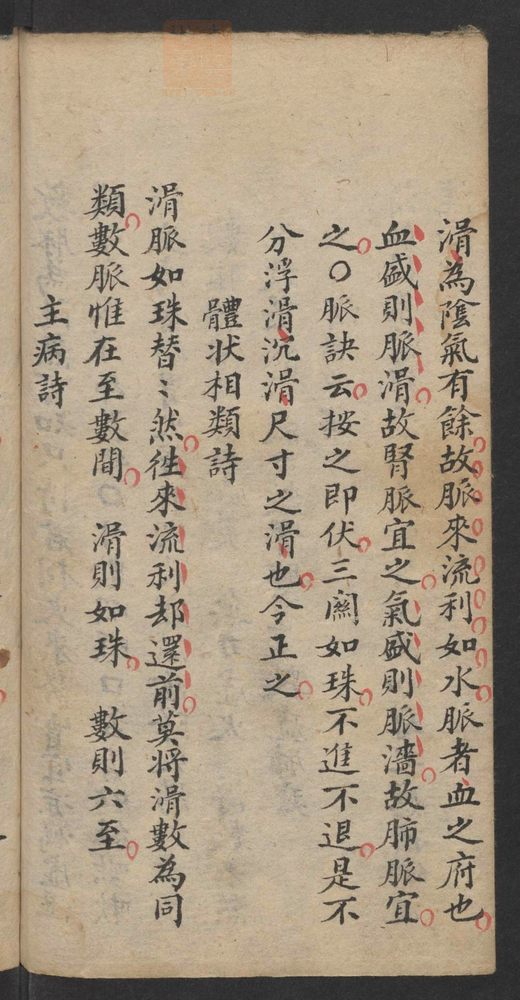 滑為陰氣有餘故脈來流利如水脈者血之府也
血盛則脈滑故腎脈宜之氣盛則脈濇故肺脈宜
之○脈訣云按之即伏三關如珠不進不退是不
分浮滑沉滑尺寸之滑也今正之
體状相類詩
滑脈如珠替〻然徃來流利却還前莫将滑數為同
類數脈惟在至數間 滑則如珠 數則六至
主病詩